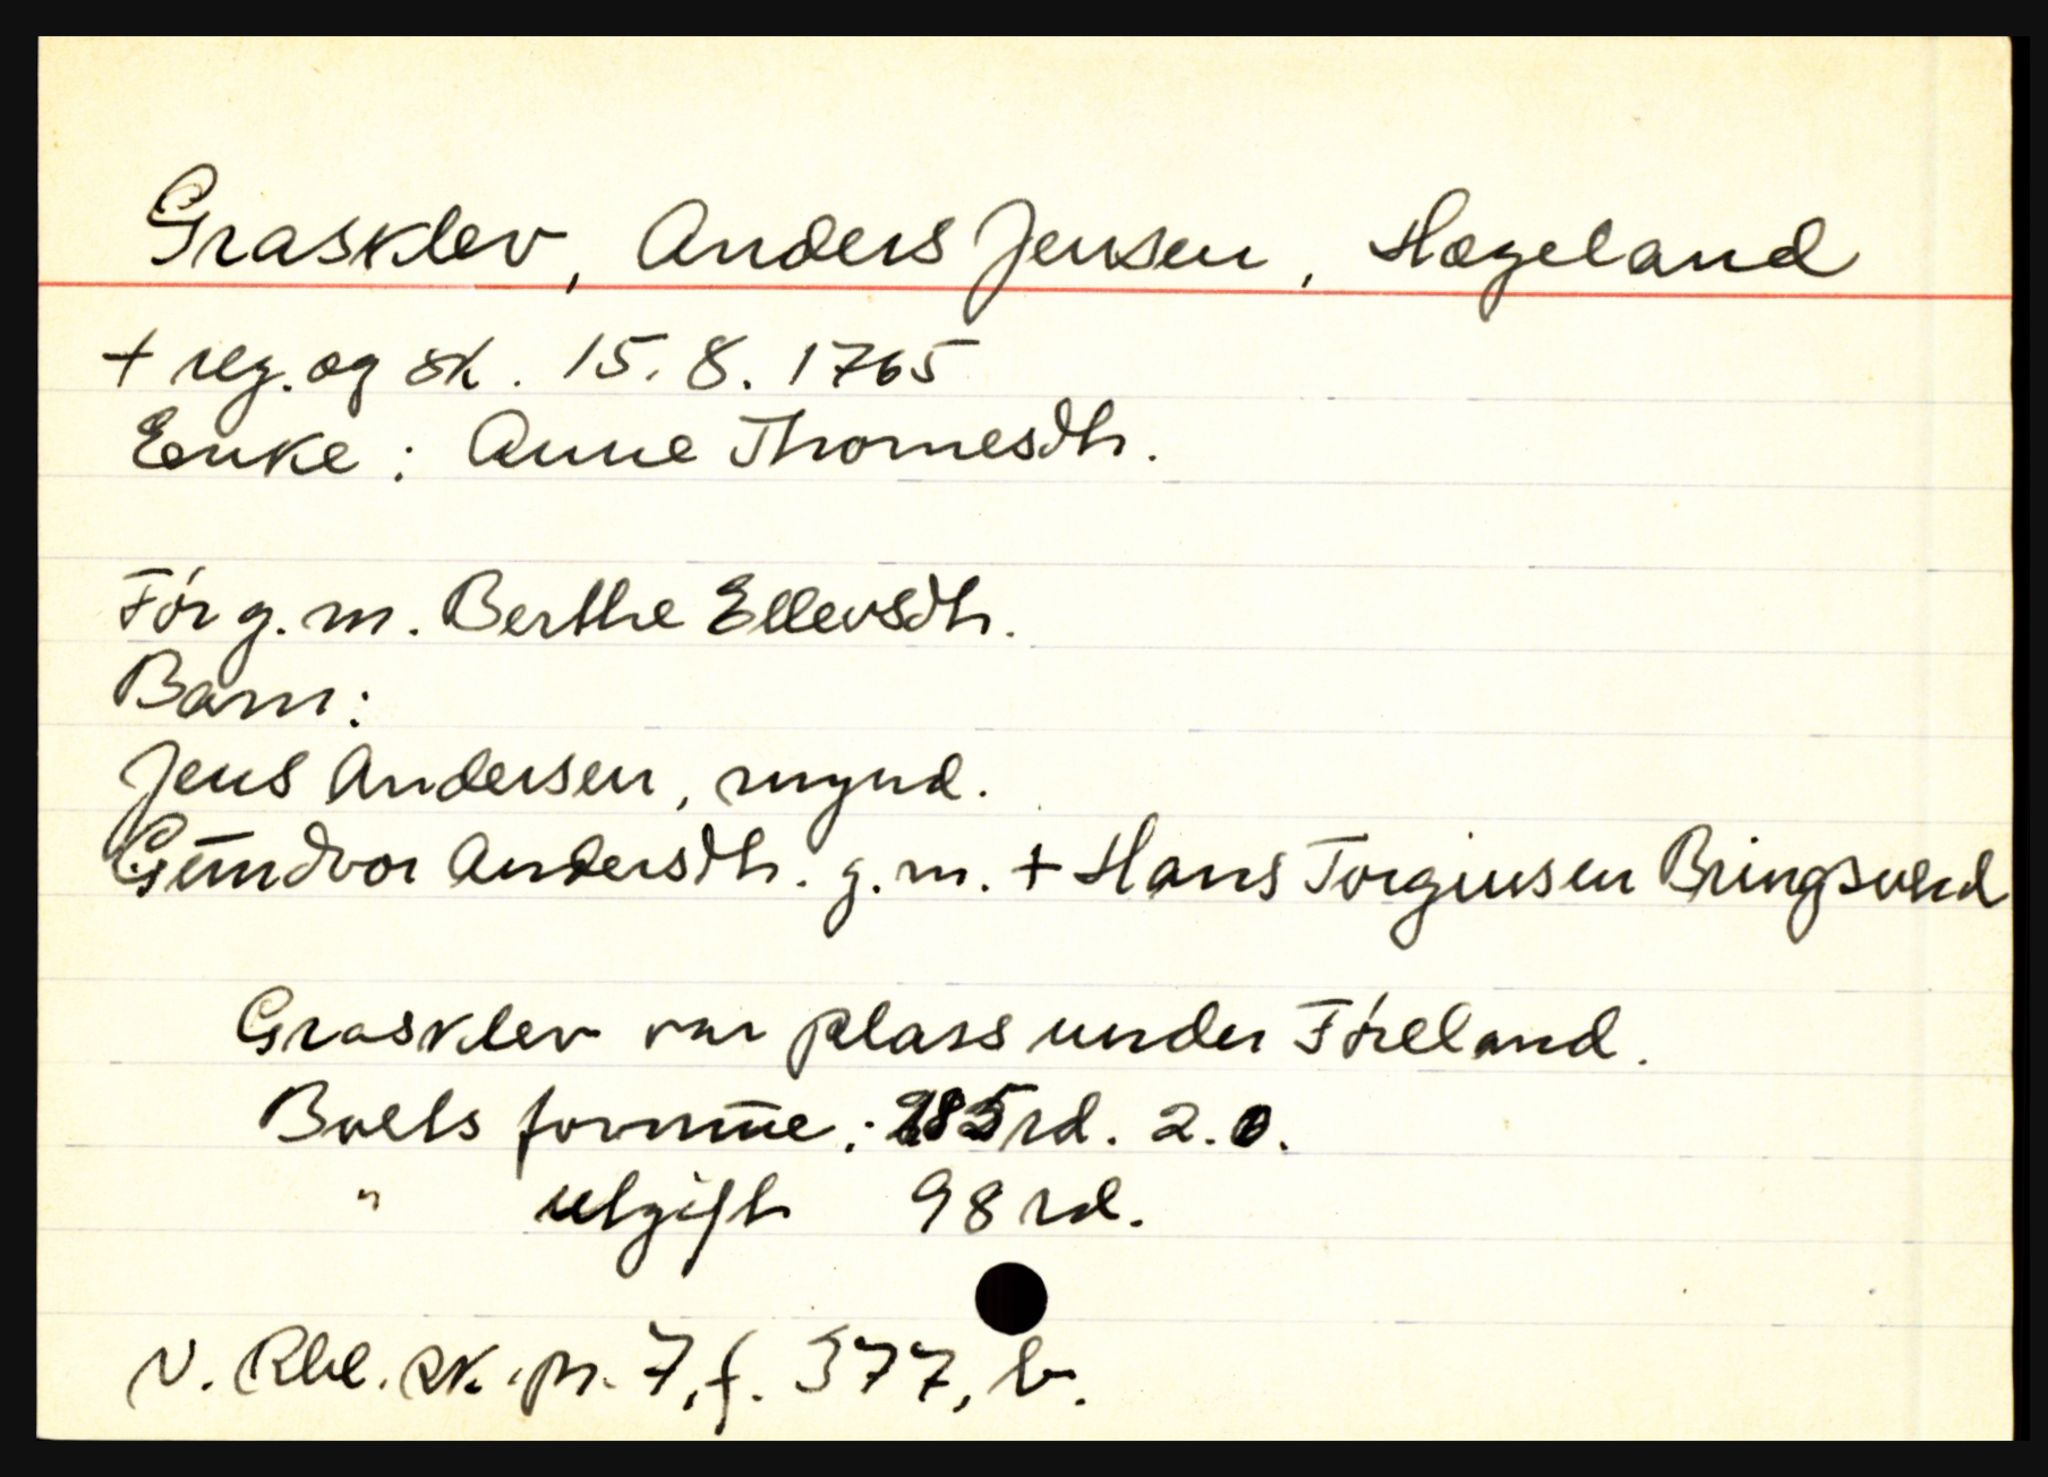 Grasklev, Anders Jensen, Hægeland
+ reg. og sk. 15.8.1765
Enke: Anne Thomesdtr.
Før g.m. Berthe Ellevsdtr.
Barn:
Jens Andersen, mynd.
Gundvor Andersdtr. g.m. + Hans Torgiusen Bringsverd
Grasklev var plass under Føreland.
Boets formue: rd. 2.0.
" utgift 98 rd.
N. Rbl. sk. pr. 7, f. 377, b.